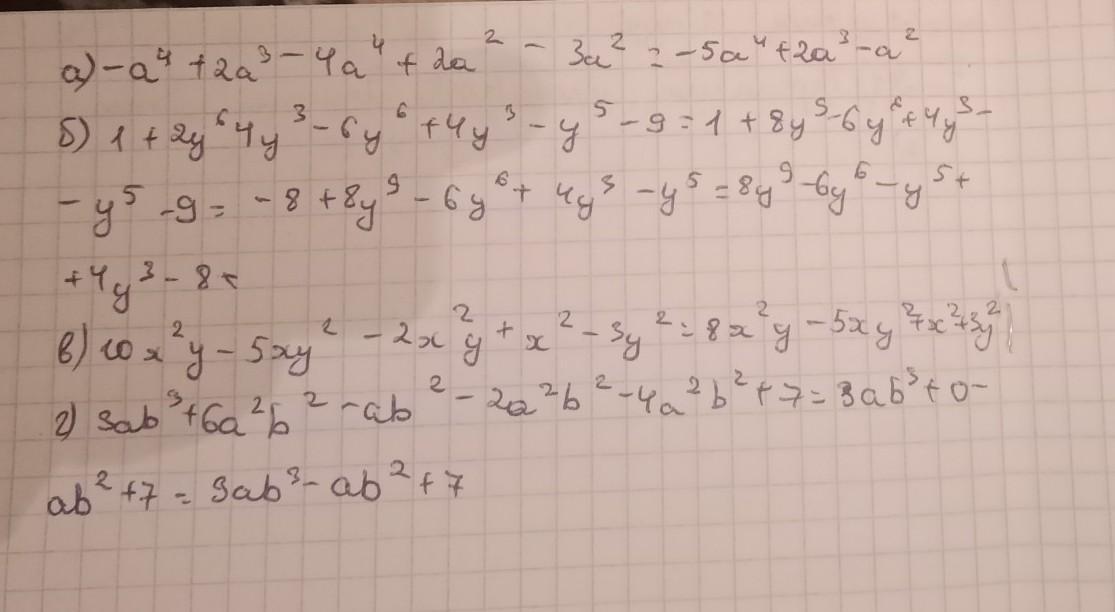 а) -a⁴ + 2a³ - 4a⁴ + 2a² - 3a² = -5a⁴ + 2a³ - a²
б) 1 + 2y⁶4y³ - 6y⁶ + 4y³ - y⁵ - 9 = 1 + 8y⁹ - 6y⁶ + 4y³ -
- y⁵ - 9 = -8 + 8y⁹ - 6y⁶ + 4y³ - y⁵ = 8y⁹ - 6y⁶ - y⁵ +
+ 4y³ - 8
в) 10x²y - 5xy² - 2x²y + x² - 3y² = 8x²y - 5xy² + x² + 3y²
г) 3ab³ + 6a²b² - ab² - 2a²b² - 4a²b² + 7 = 3ab³ + 0 -
ab² + 7 = 3ab³ - ab² + 7